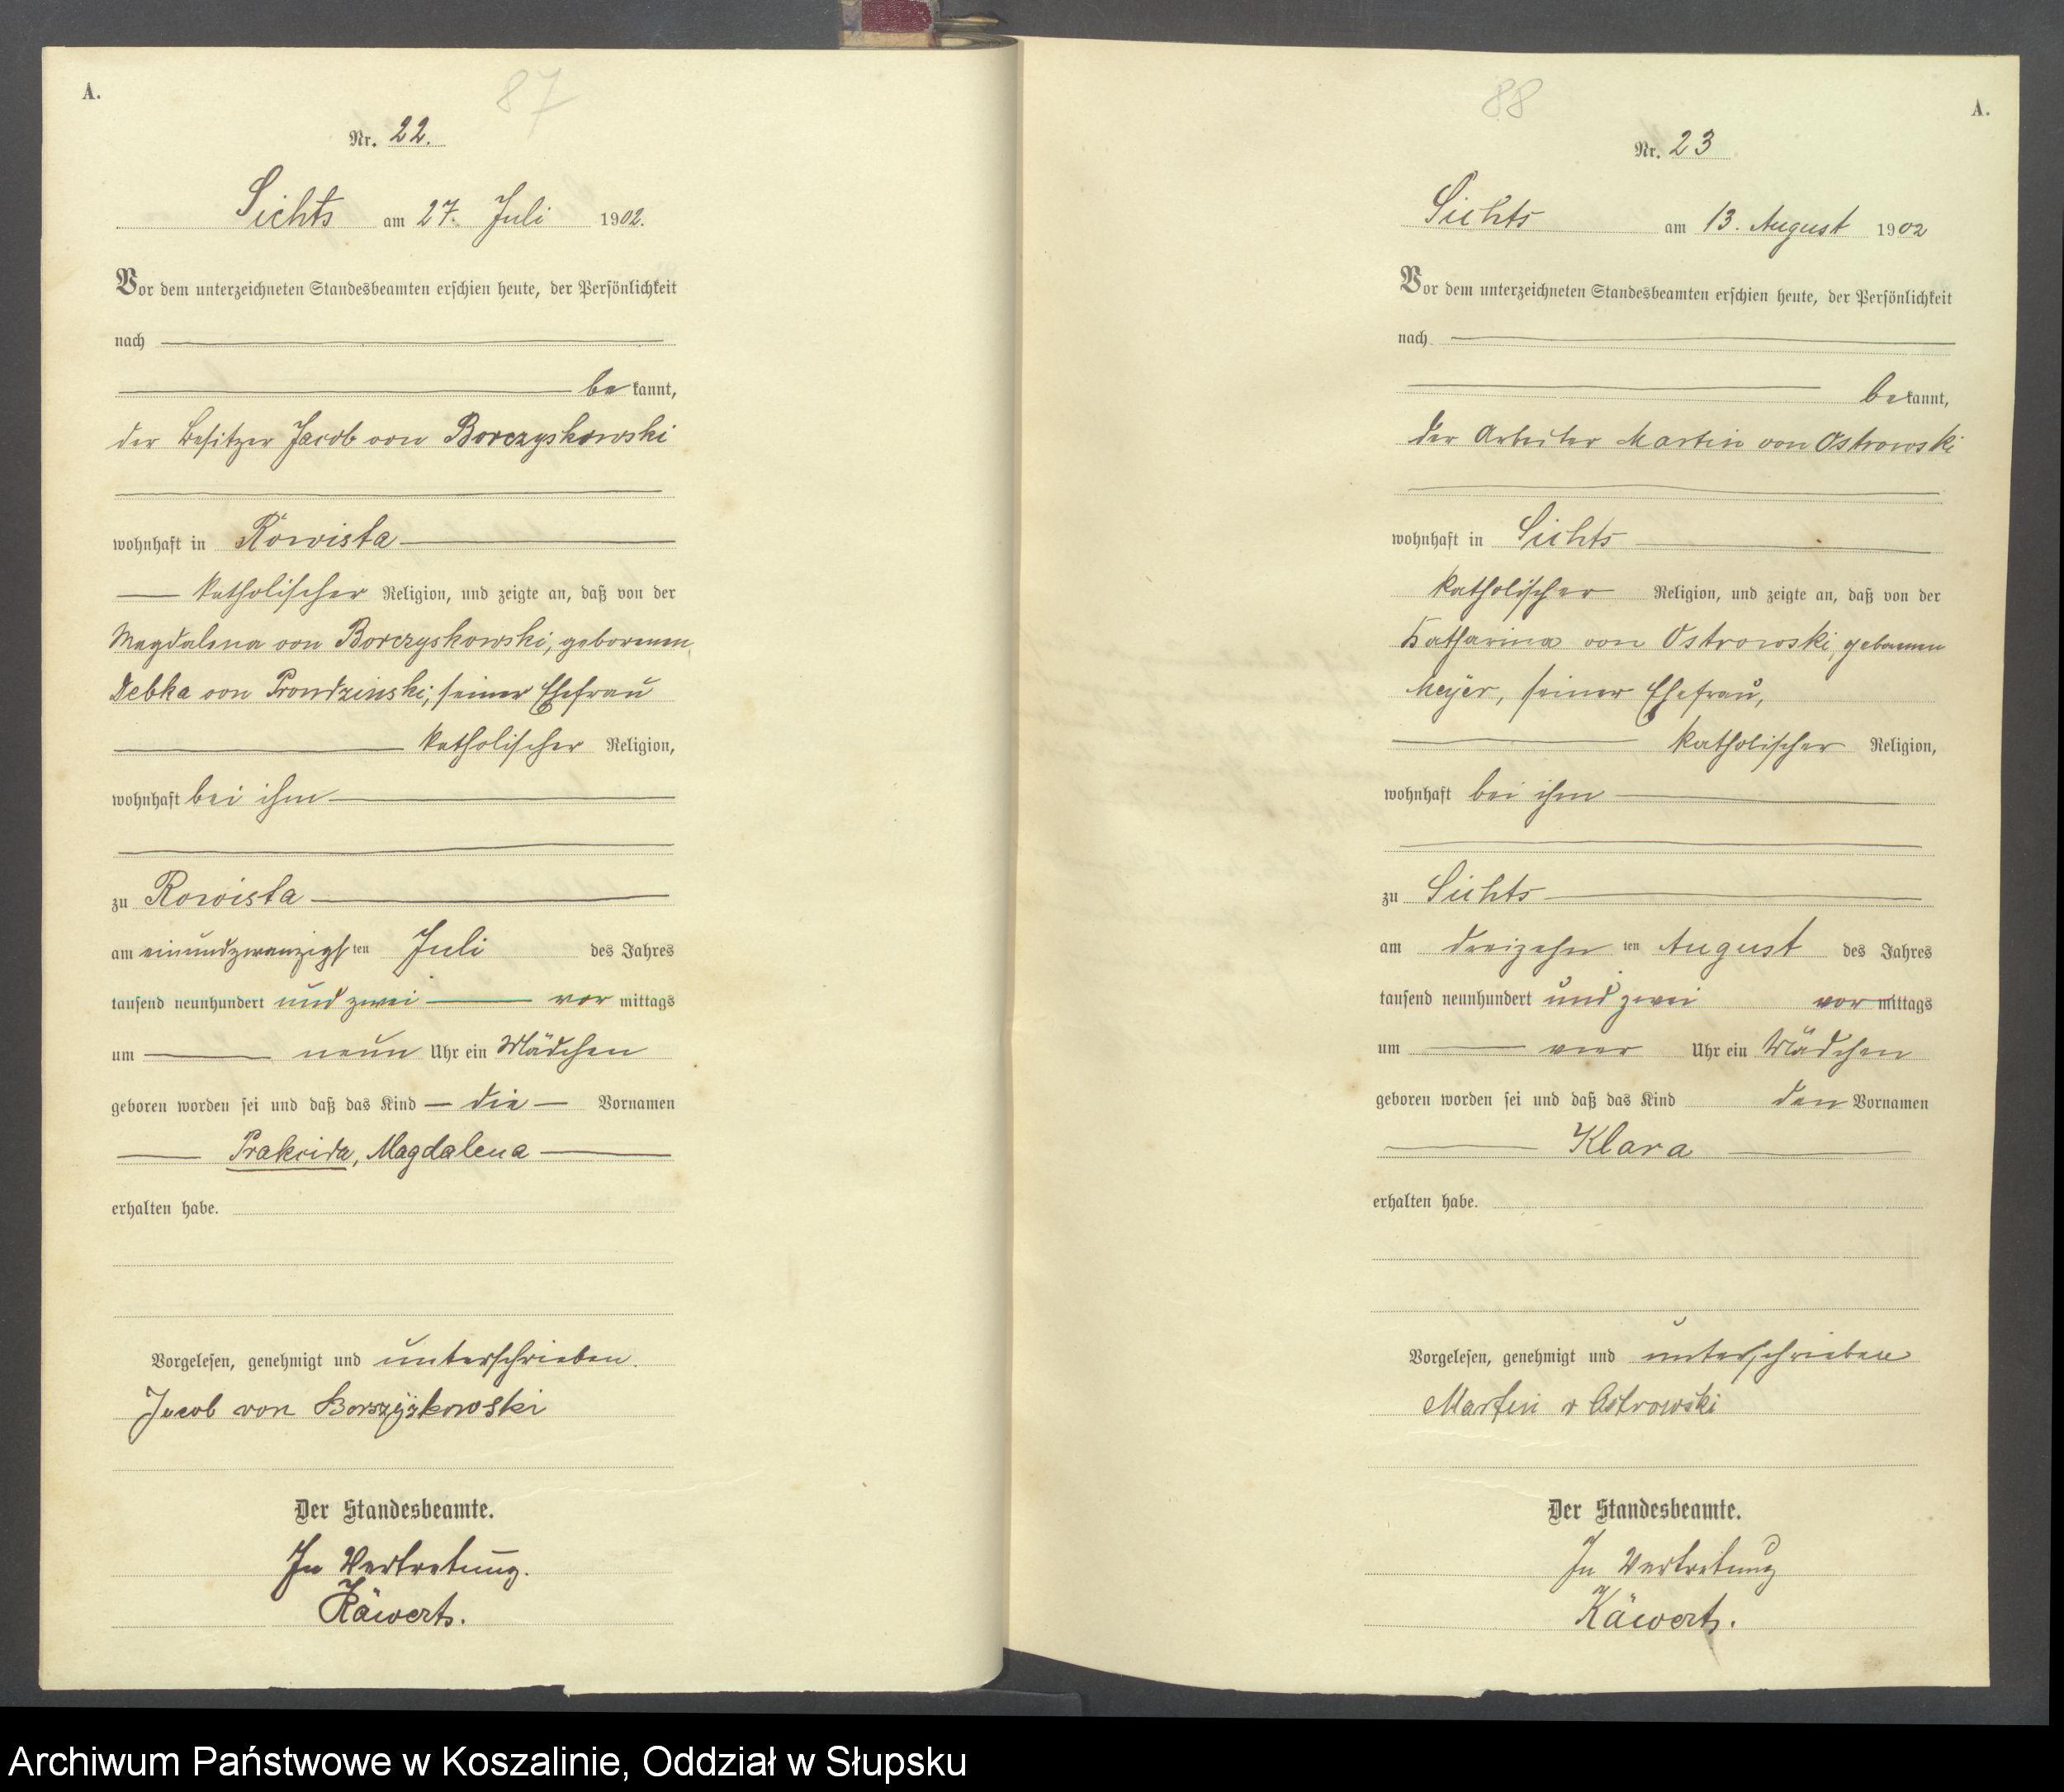 A.
87
Nr. 22.
Sichts am 27. Juli 1902.
Vor dem unterzeichneten Standesbeamten erschien heute, der Persönlichkeit
nach
be kannt,
der Besitzer Jacob von Borczyskowski
wohnhaft in Rowista
katholischer Religion, und zeigte an, daß von der
Magdalena von Borczyskowski, geborenen
Debka von Prondzinski, seiner Ehefrau
katholischer Religion,
wohnhaft bei ihm
zu Rowista
am einundzwanzigsten Juli des Jahres
tausend neunhundert und zwei vor mittags
um neun Uhr ein Mädchen
geboren worden sei und daß das Kind die Vornamen
Prakseda, Magdalena
erhalten habe.
Vorgelesen, genehmigt und unterschrieben.
Jacob von Borszyskowski
Der Standesbeamte.
In Vertretung.
Käwert.
88
A.
Nr. 23
Sichts am 13. August 1902
Vor dem unterzeichneten Standesbeamten erschien heute, der Persönlichkeit
nach
be kannt,
der Arbeiter Martin von Ostrowski
wohnhaft in Sichts
katholischer Religion, und zeigte an, daß von der
Katharina von Ostrowski, geborenen
Meyer, seiner Ehefrau,
katholischer Religion,
wohnhaft bei ihm
zu Sichts
am dreizehn ten August des Jahres
tausend neunhundert und zwei vor mittags
um vier Uhr ein Mädchen
geboren worden sei und daß das Kind den Vornamen
Klara
erhalten habe.
Vorgelesen, genehmigt und unterschrieben
Martin v Ostrowski
Der Standesbeamte.
In Vertretung
Käwert.
Archiwum Państwowe w Koszalinie, Oddział w Słupsku